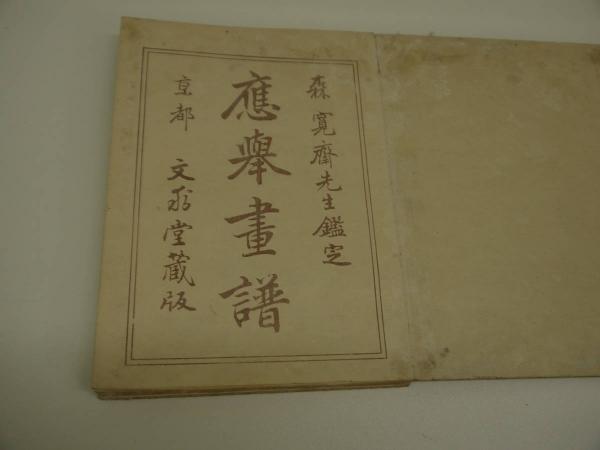 森寛齋先生鑑定
應舉畫譜
京都 文求堂蔵版